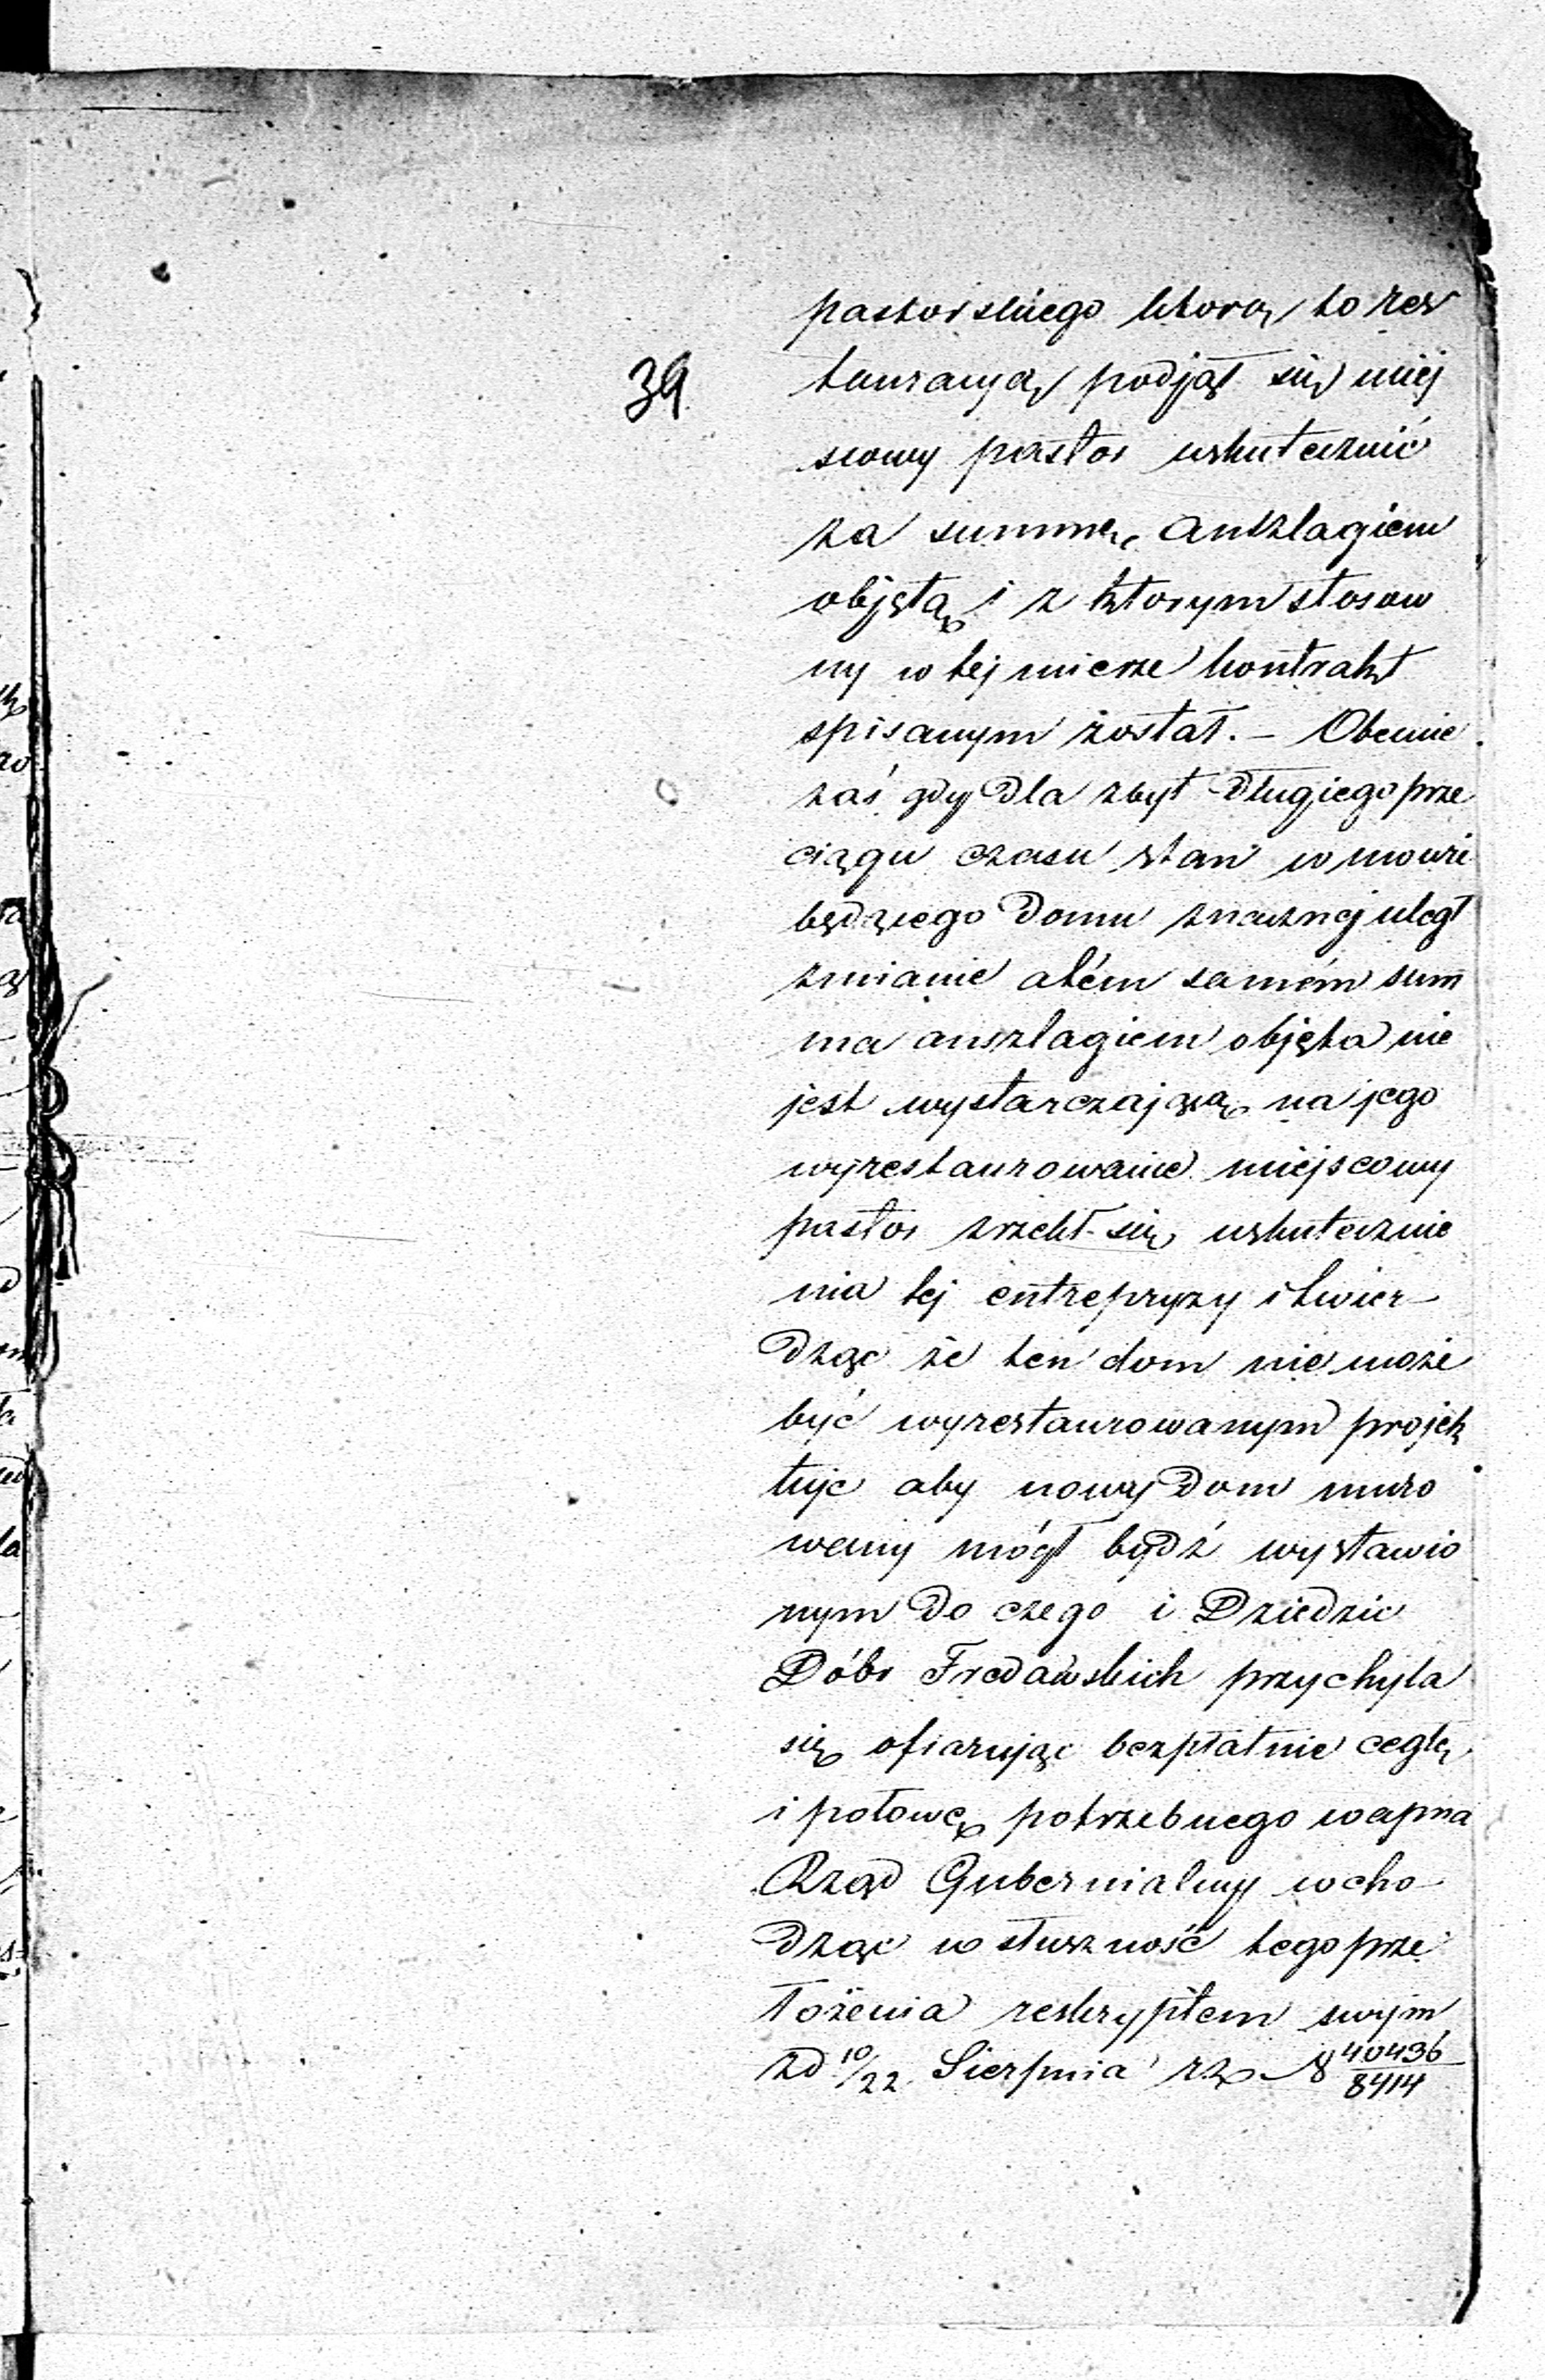 39
pastorskiego którą to res
tauracyą podjął się miej
scowy pastor uskutecznić
za summę anszlagiem
objętą i z którym stosow
ny w tej mierze kontrakt
spisanym został. – Obecnie
zaś gdy dla zbyt długiego prze
ciągu czasu stan w mowie
będącego Domu znacznej uległ
zmianie a tém samém sum
ma anszlagiem objęta nie
jest wystarczającą na jego
wyrestaurowanie miejscowy
pastor zrzekł się uskutecznie
nia tej entrepryzy i twier-
dząc że ten dom nie może
być wyrestaurowanym projek
tuje aby nowy Dom muro
wany mógł bydź wystawio
nym do czego i Dziedzic
Dóbr Fredawskich przychyla
się ofiarując bezpłatnie cegłę
i połowę potrzebnego wapna
Rząd Gubernialny wcho-
dząc w słuszność tego prze
łożenia reskryptem swym
zd 10/22 Sierpnia rz № 40436/8414